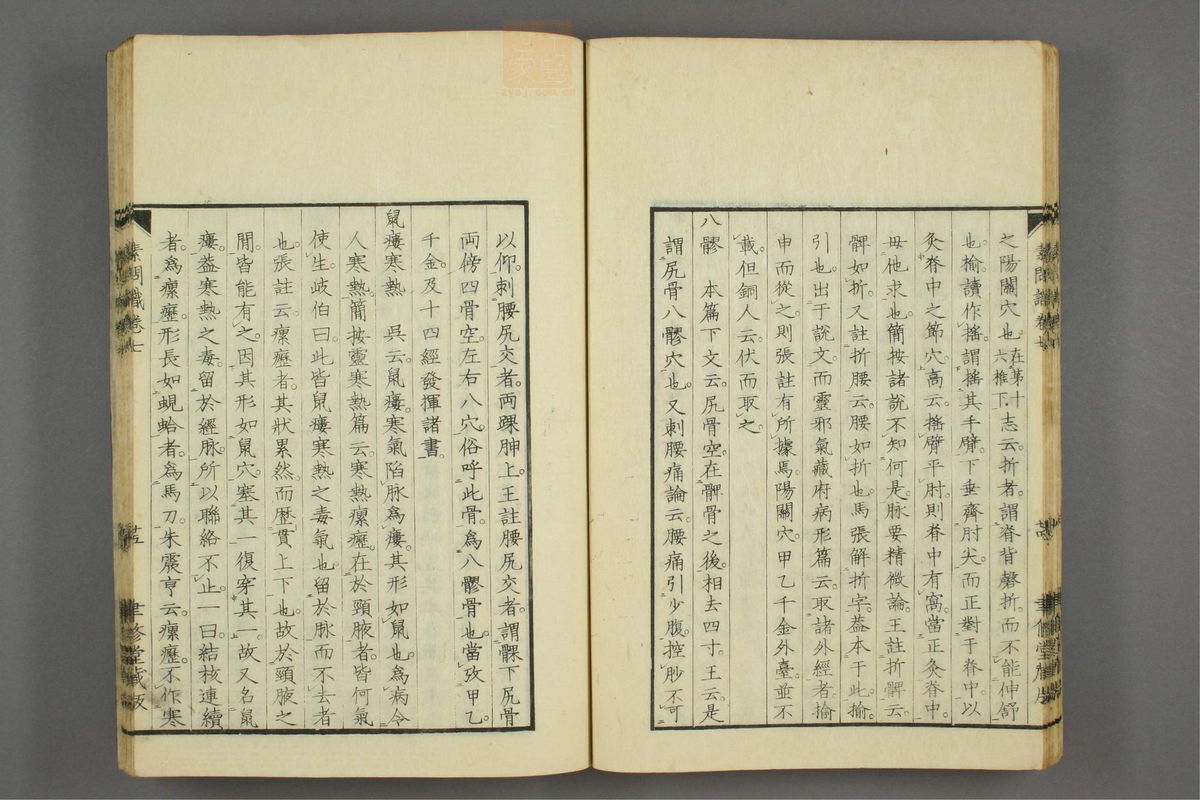 之陽關穴也在第十六椎下志云折者謂脊背磬折而不能伸舒
也榆讀作搖謂搖其手臂下垂齊肘尖而正對于脊中以
灸脊中之節穴高云搖臂平肘則脊中有窩當正灸脊中
毋他求也簡按諸說不知何是脉要精微論王註折髀云
髀如折又註折腰云腰如折也馬張解折字蓋本于此揄
引也出于說文而靈邪氣藏府病形篇云取諸外經者揄
申而從之則張註有所據焉陽關穴甲乙千金外臺並不
載但銅人云伏而取之
八髎 本篇下文云尻骨空在髀骨之後相去四寸王云是
謂尻骨八髎穴也又刺腰痛論云腰痛引少腹控䏚不可
以仰刺腰尻交者兩踝胂上王註腰尻交者謂髁下尻骨
兩傍四骨空左右八穴俗呼此骨為八髎骨也當攷甲乙
千金及十四經發揮諸書
鼠瘻寒熱 吳云鼠瘻寒氣陷脉為瘻其形如鼠也為病令
人寒熱簡按靈寒熱篇云寒熱瘰癧在於頸腋者皆何氣
使生岐伯曰此皆鼠瘻寒熱之毒氣也留於脉而不去者
也張註云瘰癧者其狀累然而歷貫上下也故於頸腋之
間皆能有之因其形如鼠穴塞其一復穿其一故又名鼠
瘻蓋寒熱之毒留於經脉所以聯絡不止一曰結核連續
者為瘰癧形長如蜆蛤者為馬刀朱震亨云瘰癧不作寒
素問識卷七
聿修堂藏板